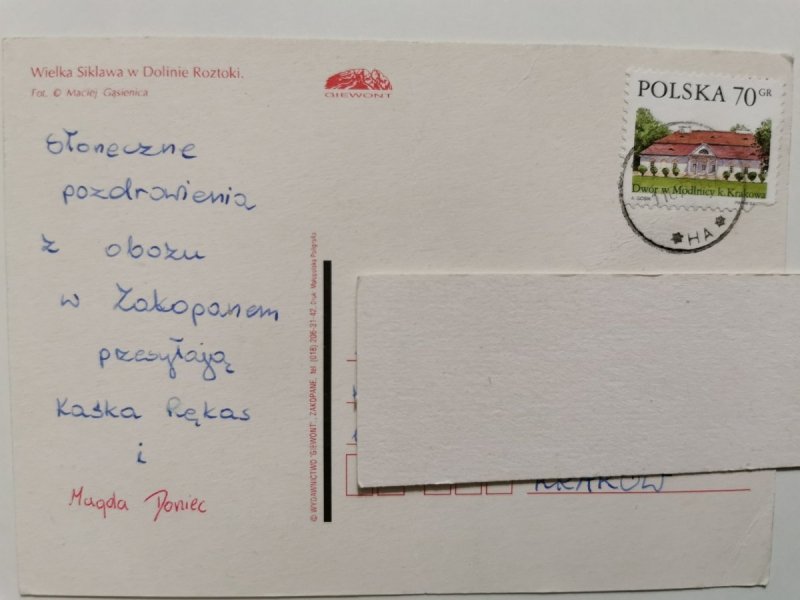 Wielka Siklawa w Dolinie Roztoki.
Fot. © Maciej Gąsienica
GIEWONT
POLSKA 70 GR
Dwór w Modlnicy k. Krakowa
HA
Słoneczne
pozdrowienia
z obozu
w Zakopanem
przesyłają
Kaśka Rękas
i
Magda Doniec
© WYDAWNICTWO "GIEWONT", ZAKOPANE, tel (018) 206-31-42, Druk: Małopolska Poligrafia
KRAKÓW